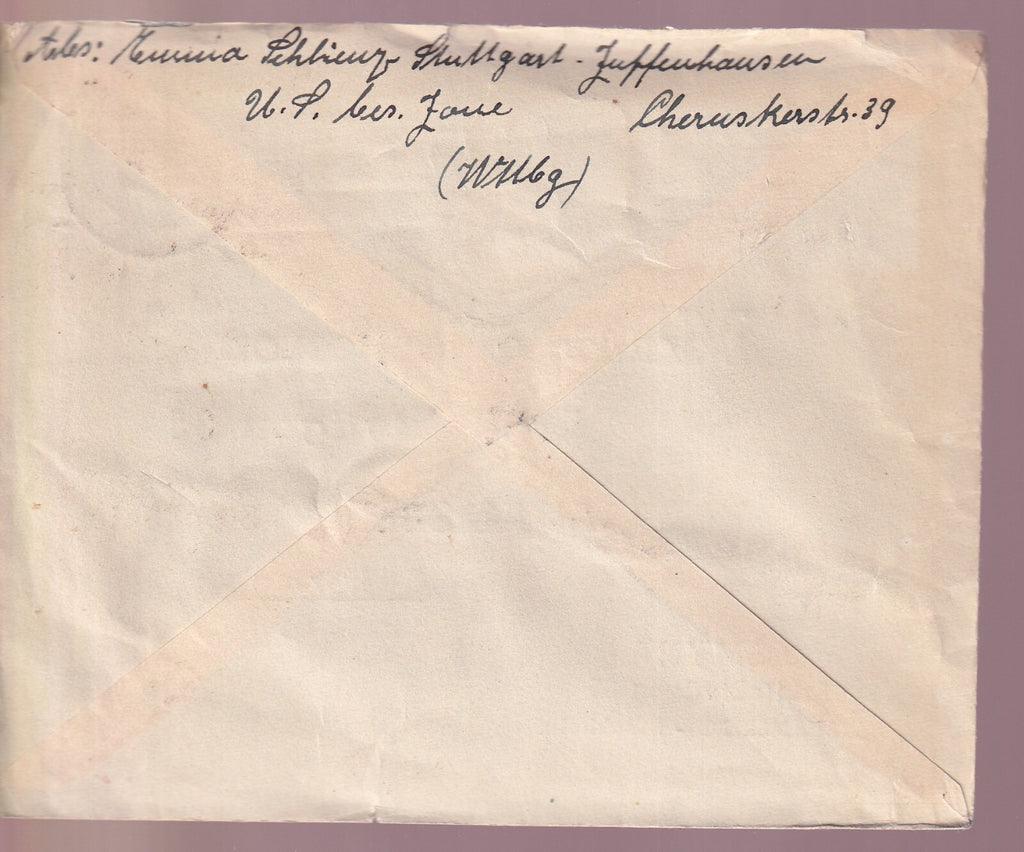 Abs: Emma Schlienz Stuttgart - Zuffenhausen
U.S. bes. Zone Cheruskerstr. 39
(Wttbg)